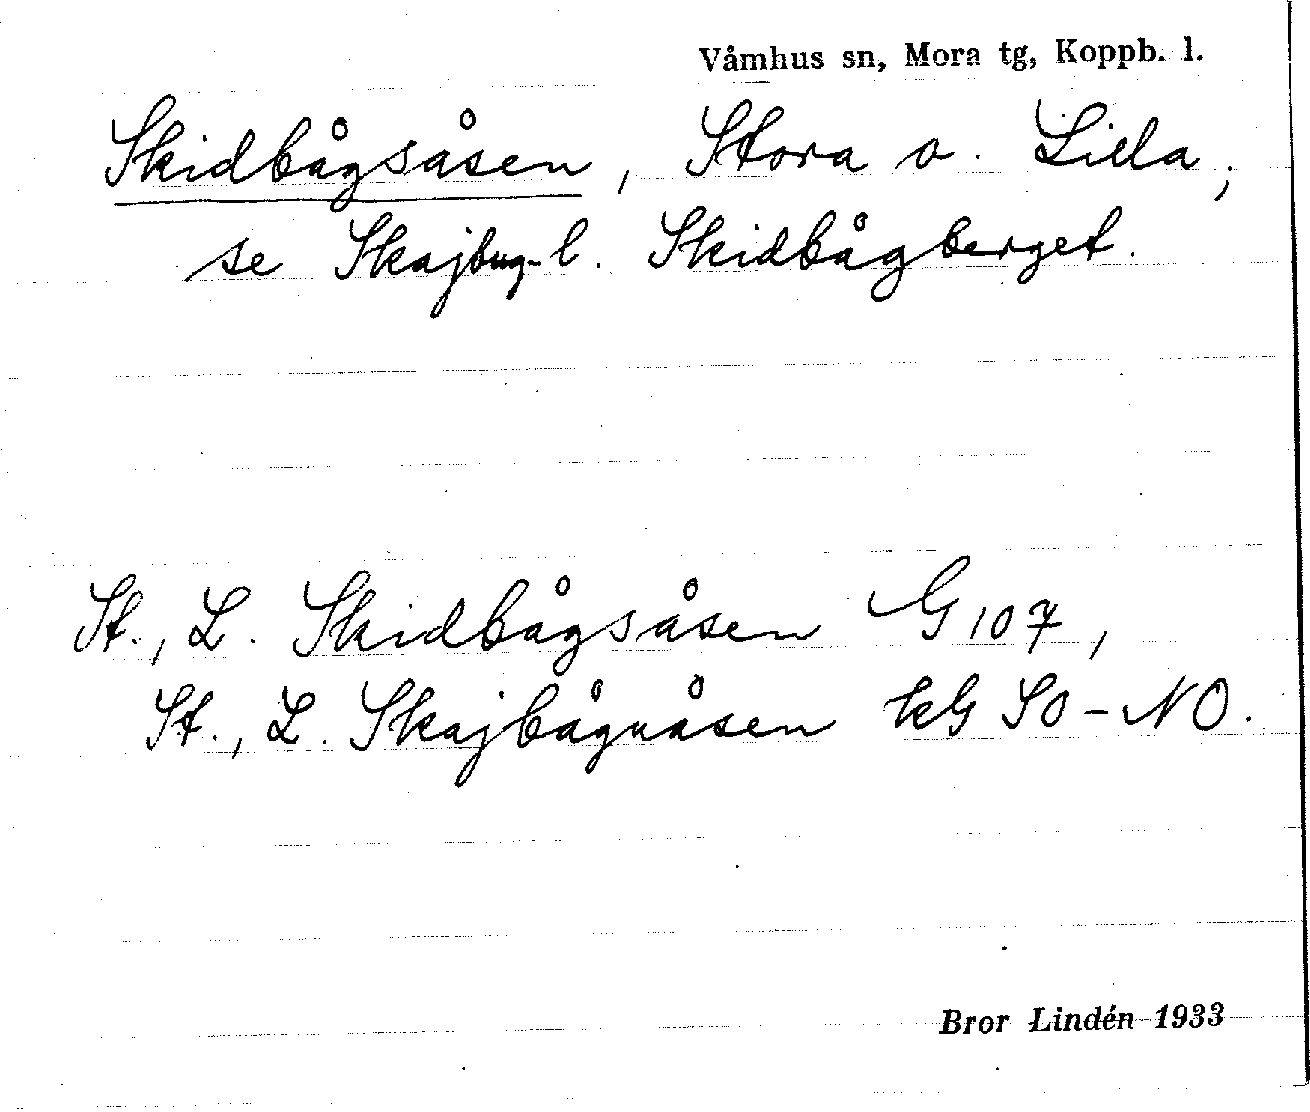 Våmhus sn, Mora tg, Koppb. l.
Skidbågsåsen, Stora o. Lilla;
se Skajbug- l. Skidbågberget.
St., L. Skidbågsåsen G 107,
St., L. Skajbågnåsen kG SO-NO.
Bror Lindén 1933